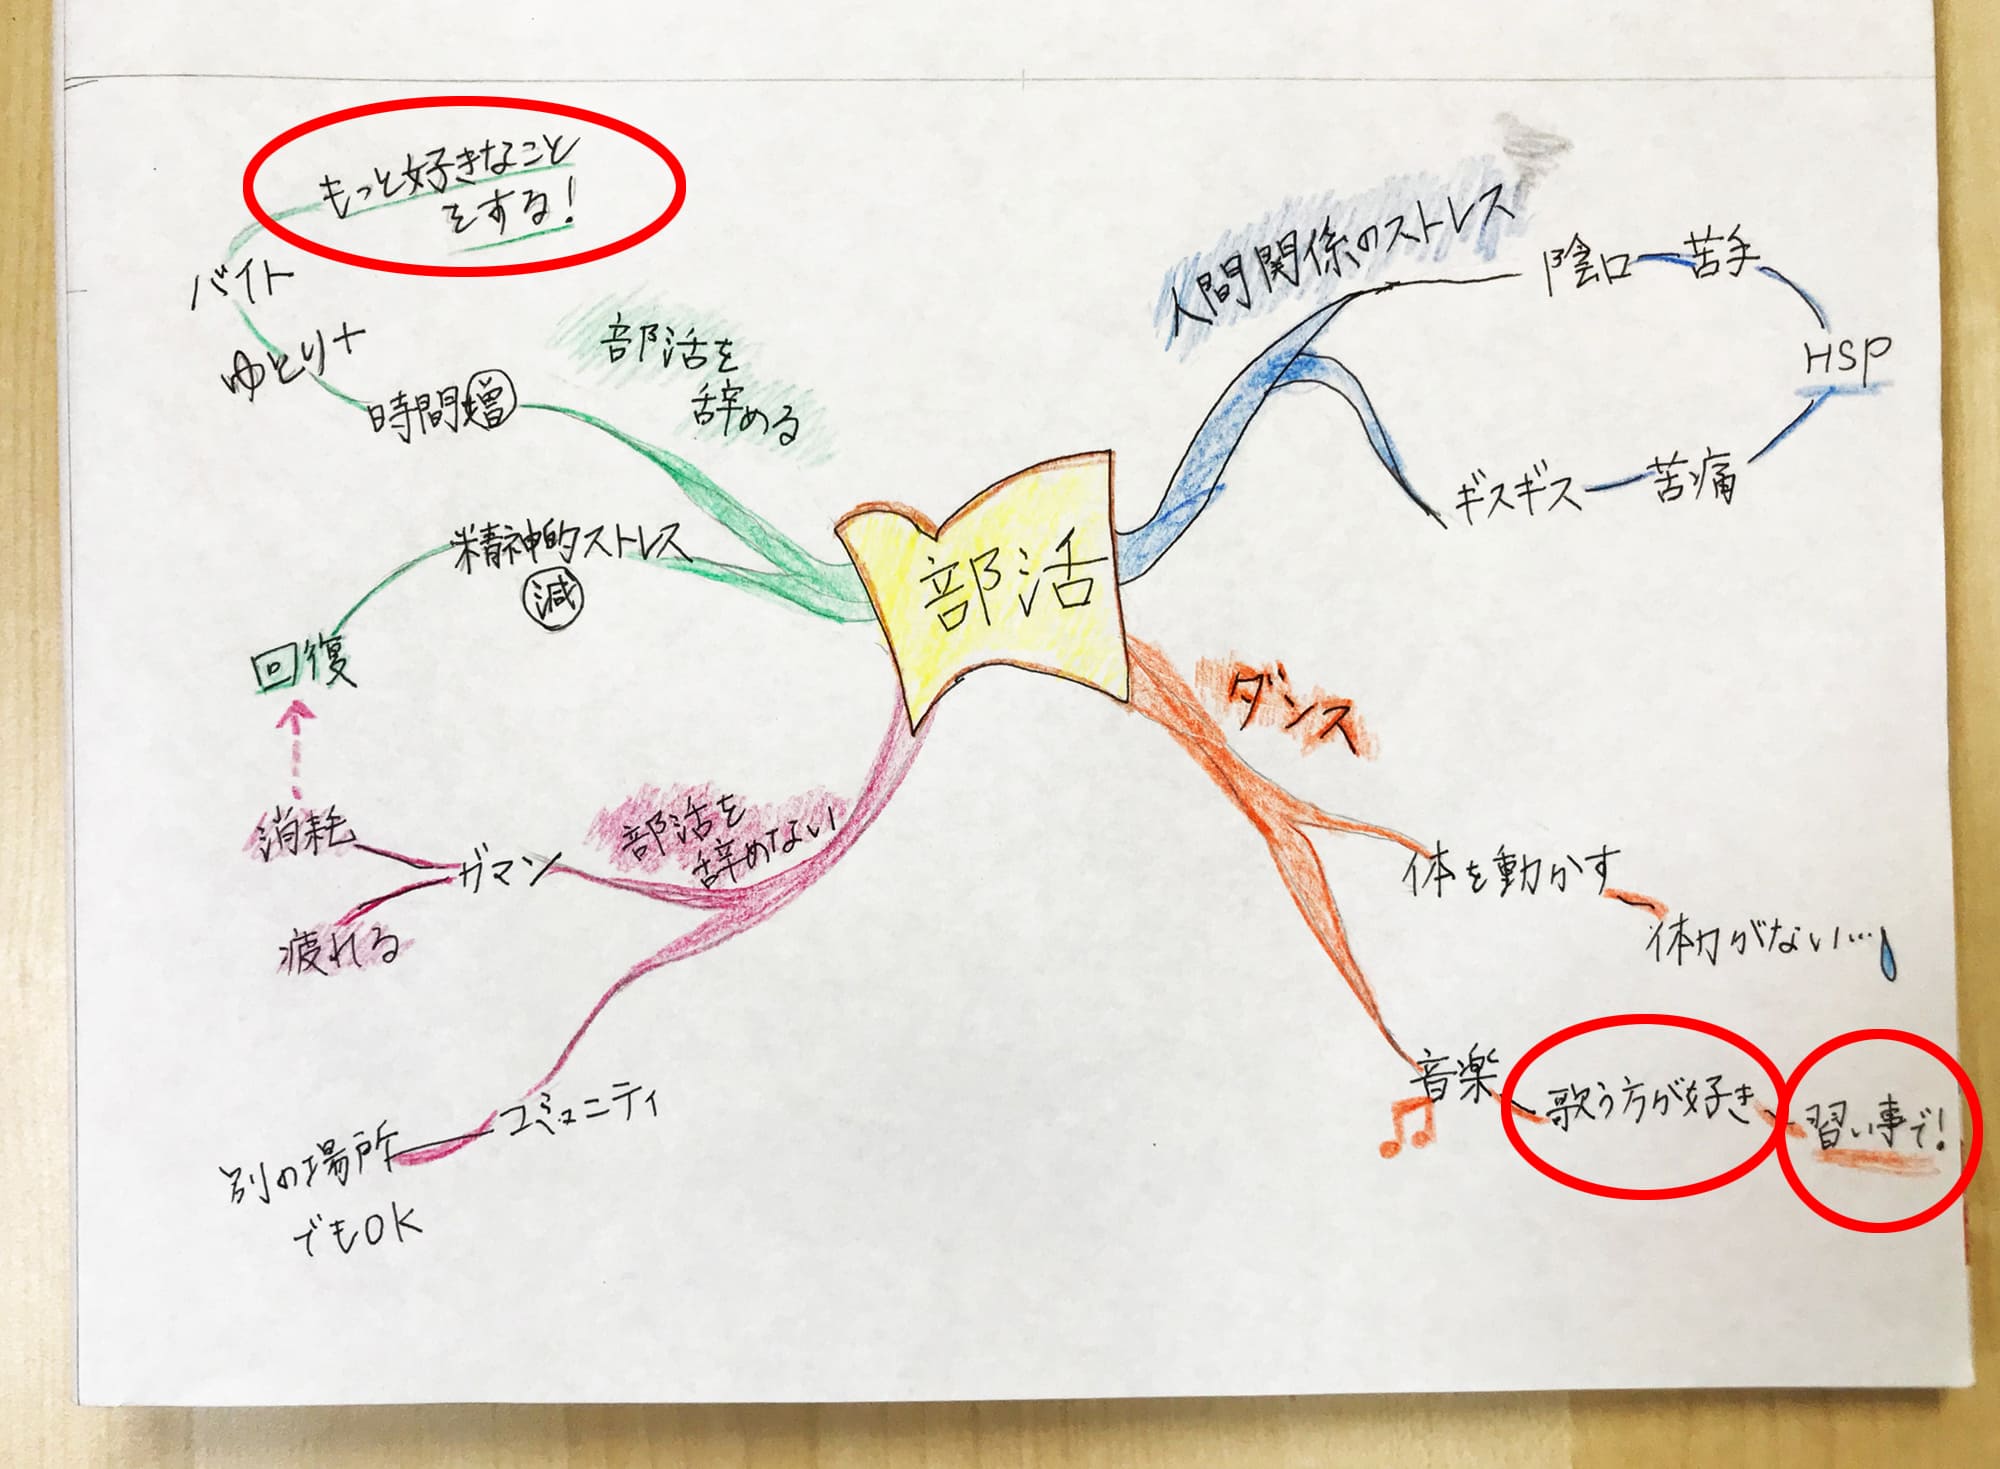 部活
人間関係のストレス
陰口
苦手
HSP
ギスギス
苦痛
ダンス
体を動かす
体力がない…
音楽
歌う方が好き
習い事で!
部活を
辞めない
ガマン
消耗
疲れる
コミュニティ
別の場所
でもOK
部活を
辞める
時間増
ゆとり+
バイト
もっと好きなこと
をする!
精神的ストレス
減
回復